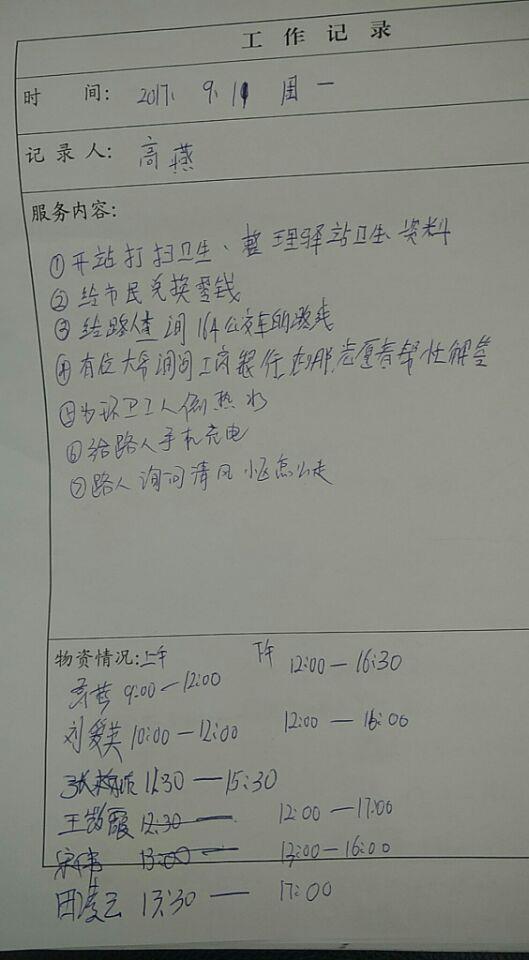 工作记录
时 间: 2017. 9. 11 周一
记录人: 高燕
服务内容:
①开站打扫卫生、整理驿站卫生、资料
②给市民兑换零钱
③给路人查询164公交车的路线
④有位大爷询问工商银行在哪,志愿者帮忙解答
⑤为环卫工人倒热水
⑥给路人手机充电
⑦路人询问清风小区怎么走
物资情况: 上午 下午
高燕 9:00—12:00 12:00—16:30
刘爱英 10:00—12:00 12:00—16:00
11:30—15:30
王 霞 12:30— 12:00—17:00
宋伟 13:00— 13:00—16:00
田凌云 13:30— 17:00